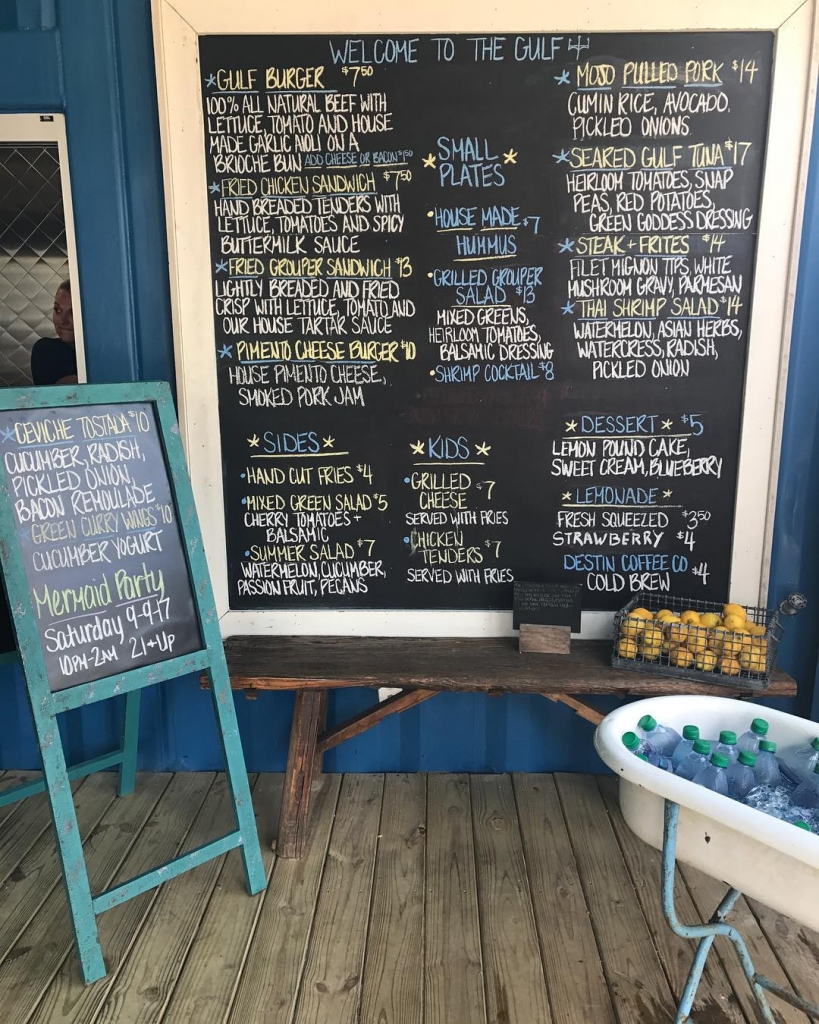 WELCOME TO THE GULF
*GULF BURGER $7.50
100% ALL NATURAL BEEF WITH
LETTUCE, TOMATO AND HOUSE
MADE GARLIC AIOLI ON A
BRIOCHE BUN ADD CHEESE OR BACON $1.50
*FRIED CHICKEN SANDWICH $7.50
HAND BREADED TENDERS WITH
LETTUCE, TOMATOES AND SPICY
BUTTERMILK SAUCE
*FRIED GROUPER SANDWICH $13
LIGHTLY BREADED AND FRIED
CRISP WITH LETTUCE, TOMATO AND
OUR HOUSE TARTAR SAUCE
*PIMENTO CHEESE BURGER $10
HOUSE PIMENTO CHEESE,
SMOKED PORK JAM
*SIDES*
•HAND CUT FRIES $4
•MIXED GREEN SALAD $5
CHERRY TOMATOES +
BALSAMIC
•SUMMER SALAD $7
WATERMELON, CUCUMBER,
PASSION FRUIT, PECANS
*SMALL
PLATES*
•HOUSE MADE $7
HUMMUS
•GRILLED GROUPER
SALAD $13
MIXED GREENS,
HEIRLOOM TOMATOES,
BALSAMIC DRESSING
•SHRIMP COCKTAIL $8
*KIDS*
•GRILLED
CHEESE $7
SERVED WITH FRIES
•CHICKEN
TENDERS $7
SERVED WITH FRIES
*MOJO PULLED PORK $14
CUMIN RICE, AVOCADO,
PICKLED ONIONS
*SEARED GULF TUNA $17
HEIRLOOM TOMATOES, SNAP
PEAS, RED POTATOES,
GREEN GODDESS DRESSING
*STEAK + FRITES $14
FILET MIGNON TIPS, WHITE
MUSHROOM GRAVY, PARMESAN
*THAI SHRIMP SALAD $14
WATERMELON, ASIAN HERBS,
WATERCRESS, RADISH,
PICKLED ONION
*DESSERT* $5
LEMON POUND CAKE,
SWEET CREAM, BLUEBERRY
*LEMONADE*
FRESH SQUEEZED $3.50
STRAWBERRY $4
DESTIN COFFEE CO
COLD BREW $4
*CEVICHE TOSTADA $10
CUCUMBER, RADISH,
PICKLED ONION,
BACON REMOULADE
GREEN CURRY WINGS $10
CUCUMBER YOGURT
Mermaid Party
Saturday 9-9-17
10PM-2AM 21+UP